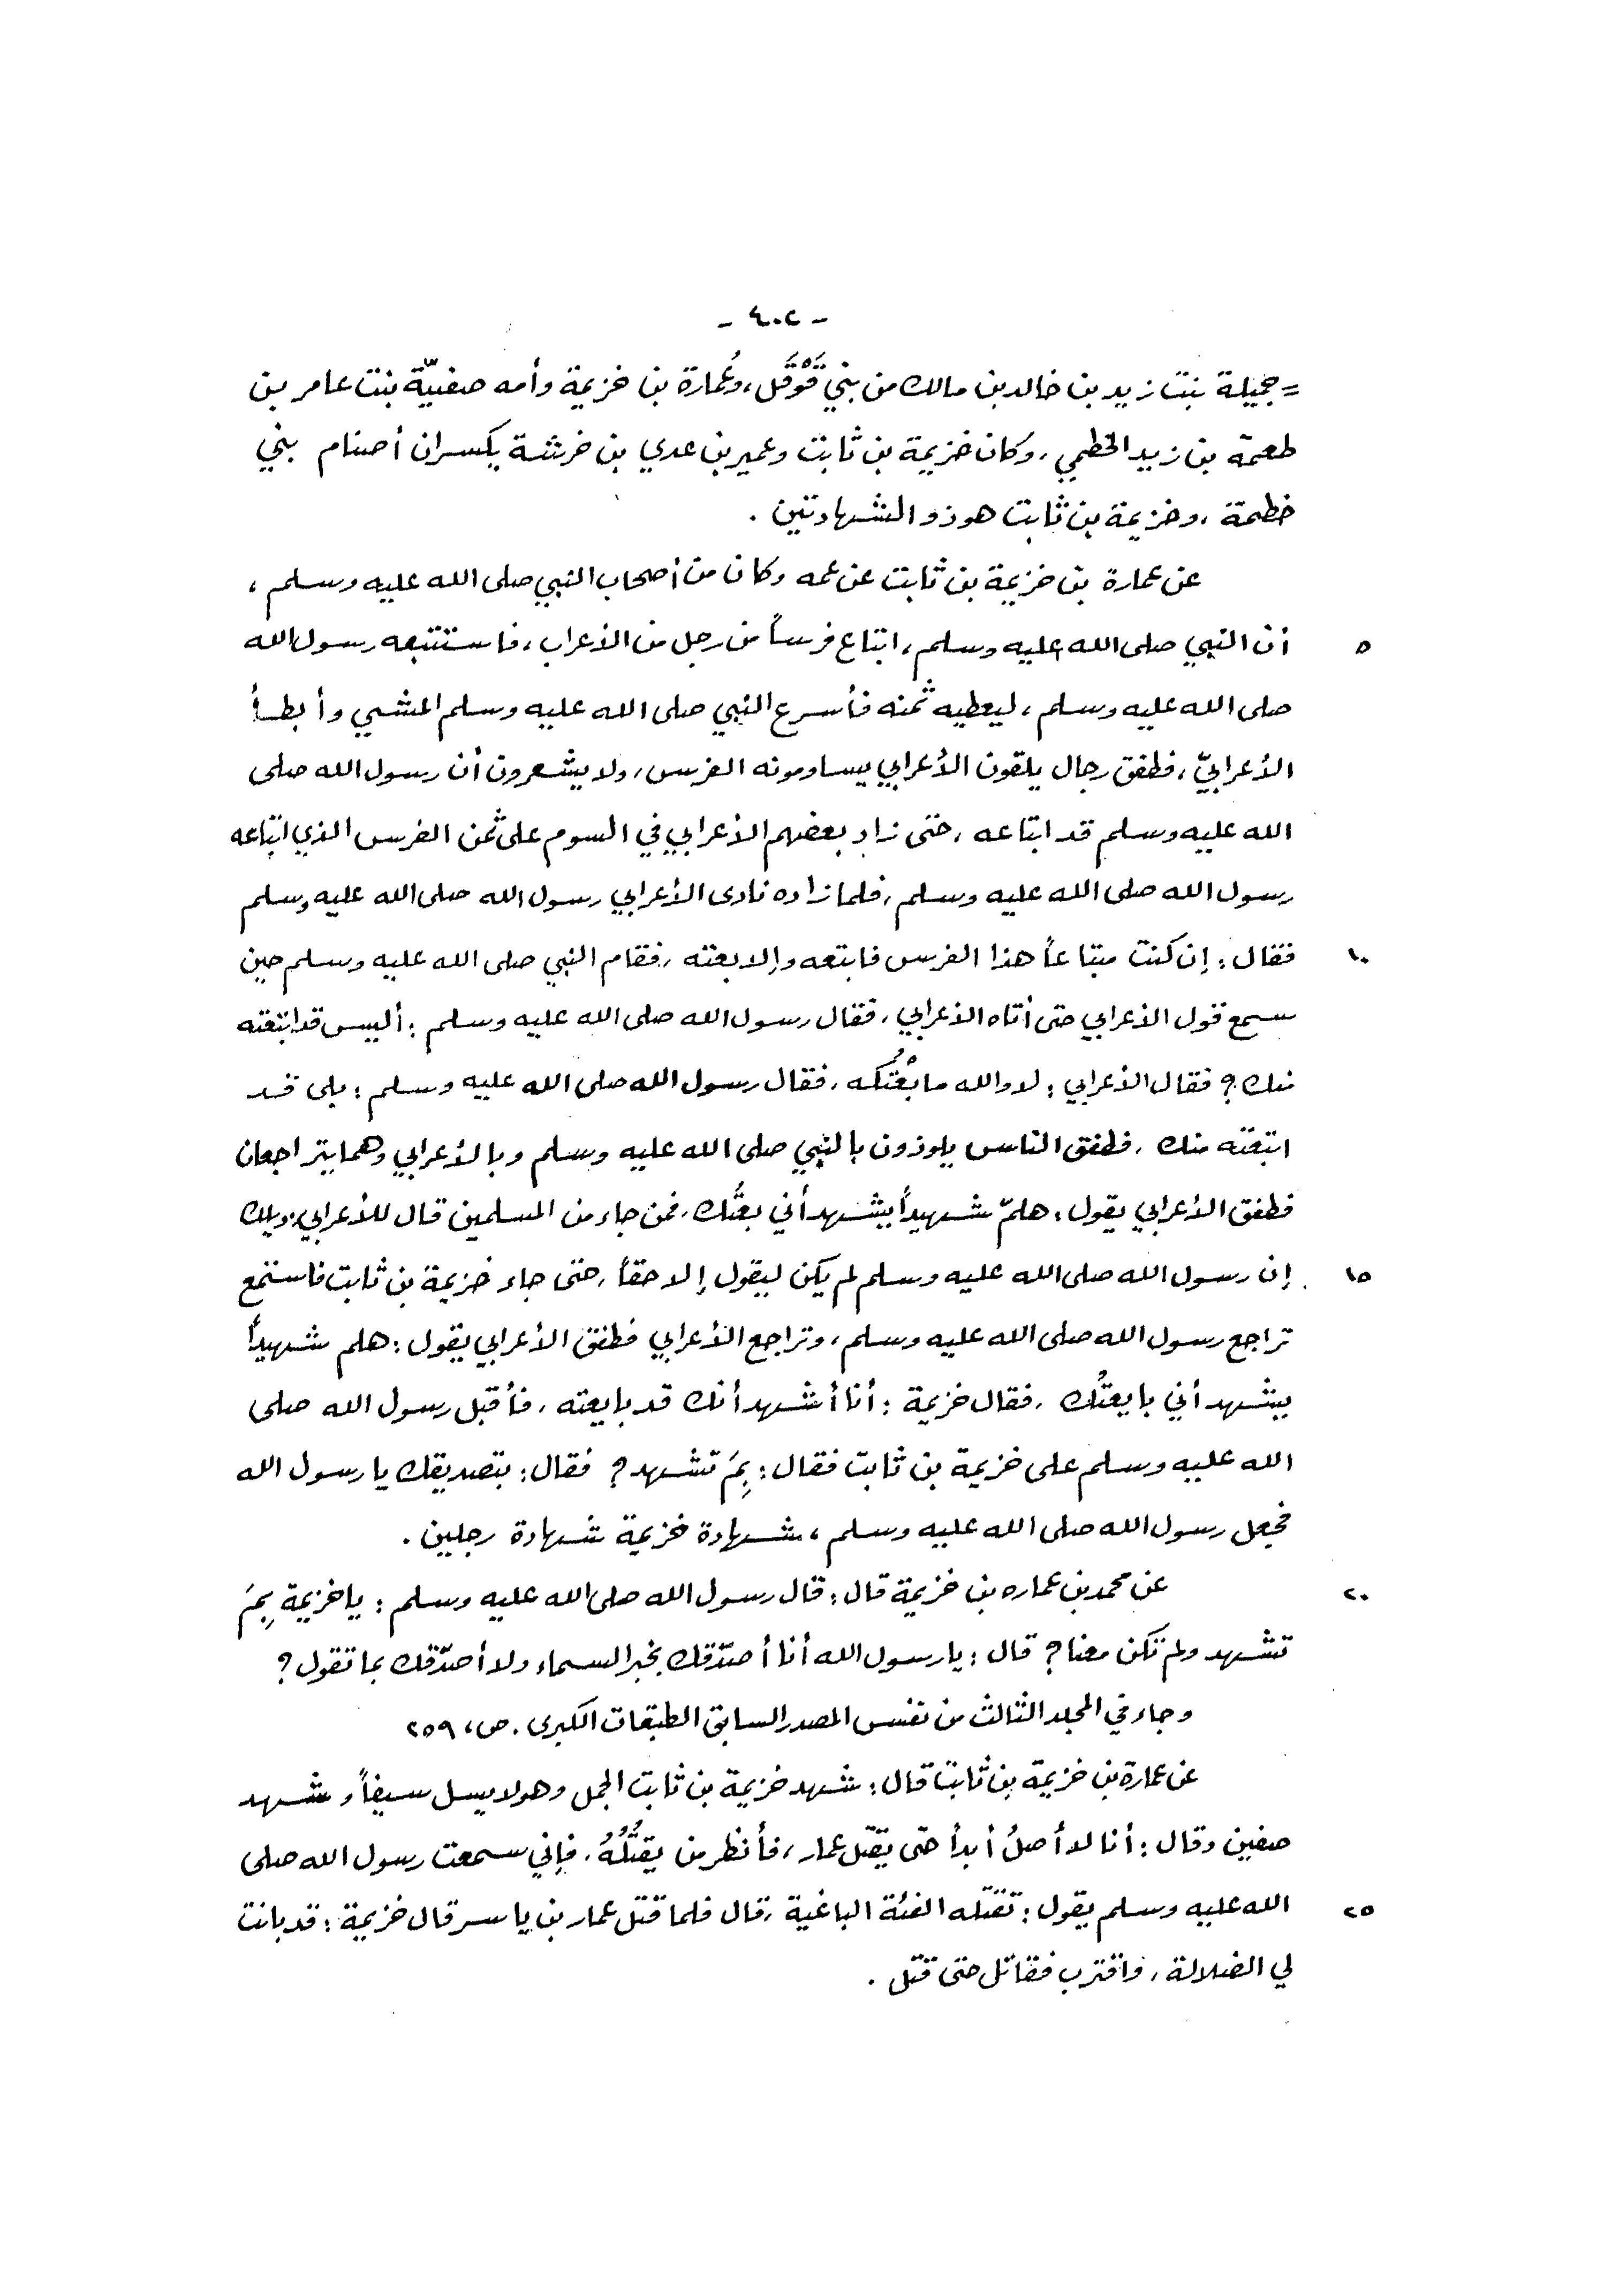 - ٤٠٢ -
= جميلة بنت زيد بن خالد بن مالك من بني قَوْقَل، وعُمارة بن خزيمة وأمه صفيّة بنت عامر بن
طعمة بن زيد الخطمي، وكان خزيمة بن ثابت وعمير بن عدي بن خرشة يكسران أصنام بني
خطمة، وخزيمة بن ثابت هو ذو الشهادتين.
عن عمارة بن خزيمة بن ثابت عن عمه وكان من أصحاب النبي صلى الله عليه وسلم،
٥ أن النبي صلى الله عليه وسلم، ابتاع فرساً من رجل من الأعراب، فاستتبعه رسول الله
صلى الله عليه وسلم، ليعطيه ثمنه فأسرع النبي صلى الله عليه وسلم المشي وأبطأ
الأعرابيّ، فطفق رجال يلقون الأعرابي يساومونه الفرس، ولا يشعرون أن رسول الله صلى
الله عليه وسلم قد ابتاعه، حتى زاد بعضهم الأعرابي في السوم على ثمن الفرس الذي ابتاعه
رسول الله صلى الله عليه وسلم، فلما زاده نادى الأعرابي رسول الله صلى الله عليه وسلم
١٠ فقال: إن كنت مبتاعاً هذا الفرس فابتعه وإلا بعته، فقام النبي صلى الله عليه وسلم حين
سمع قول الأعرابي حتى أتاه الأعرابي، فقال رسول الله صلى الله عليه وسلم: أليس قد ابتعته
منك؟ فقال الأعرابي: لا والله ما بْعتُكه، فقال رسول الله صلى الله عليه وسلم: بلى قد
ابتعته منك، فطفق الناس يلوذون بالنبي صلى الله عليه وسلم وبالأعرابي وهما يتراجعان
فطفق الأعرابي يقول: هلمّ شهيداً يشهد أني بعتُك، فمن جاء من المسلمين قال للأعرابي: ويلك
١٥ إن رسول الله صلى الله عليه وسلم لم يكن ليقول إلا حقاً، حتى جاء خزيمة بن ثابت فاستمع
تراجع رسول الله صلى الله عليه وسلم، وتراجع الأعرابي فطفق الأعرابي يقول: هلم شهيداً
يشهد أني بايعتُك، فقال خزيمة: أنا أشهد أنك قد بايعته، فأقبل رسول الله صلى
الله عليه وسلم على خزيمة بن ثابت فقال: بِمَ تشهد؟ فقال: بتصديقك يا رسول الله
فجعل رسول الله صلى الله عليه وسلم، شهادة خزيمة شهادة رجلين.
٢٠ عن محمد بن عماره بن خزيمة قال: قال رسول الله صلى الله عليه وسلم: يا خزيمة بِمَ
تشهد ولم تكن معنا؟ قال: يا رسول الله أنا أصدّقك بخبر السماء ولا أصدّقك بما تقول؟
وجاء في المجلد الثالث من نفس المصدر السابق الطبقات الكبرى. ص، ٢٥٩
عن عمارة بن خزيمة بن ثابت قال: شهد خزيمة بن ثابت الجمل وهو لا يسل سيفاً وشهد
صفين وقال: أنا لا أصلُ أبداً حتى يقتل عمار، فأنظر من يقتُلُهُ، فإني سمعت رسول الله صلى
٢٥ الله عليه وسلم يقول: تقتله الفئة الباغية، قال فلما قتل عمار بن ياسر قال خزيمة: قد بانت
لي الضلالة، واقترب فقاتل حتى قتل.